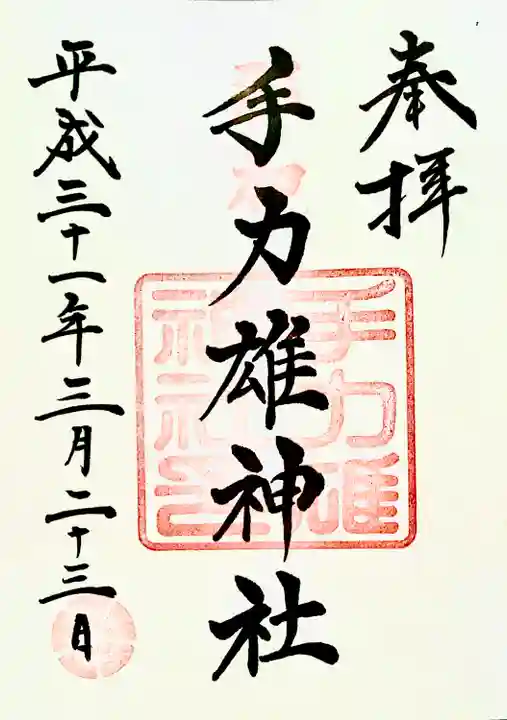 奉拝
手力雄神社
平成三十一年三月二十三日
手力雄